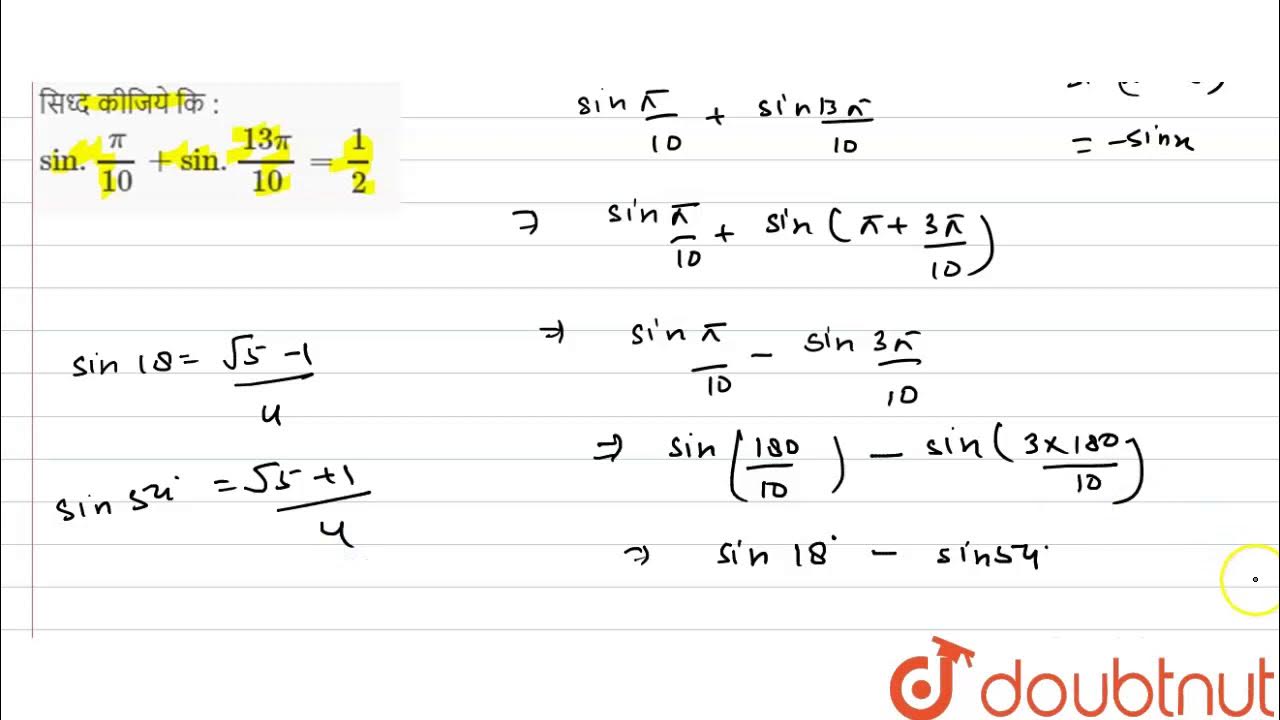 सिध्द कीजिये कि :
sin. π/10 + sin. 13π/10 = 1/2
sin π/10 + sin 13π/10
= -sinx
⇒ sin π/10 + sin (π + 3π/10)
⇒ sin π/10 - sin 3π/10
sin 18 = √5 -1/4
⇒ sin (180/10) - sin (3×180/10)
sin 54° = √5 +1/4
⇒ sin 18° - sin 54°
doubtnut